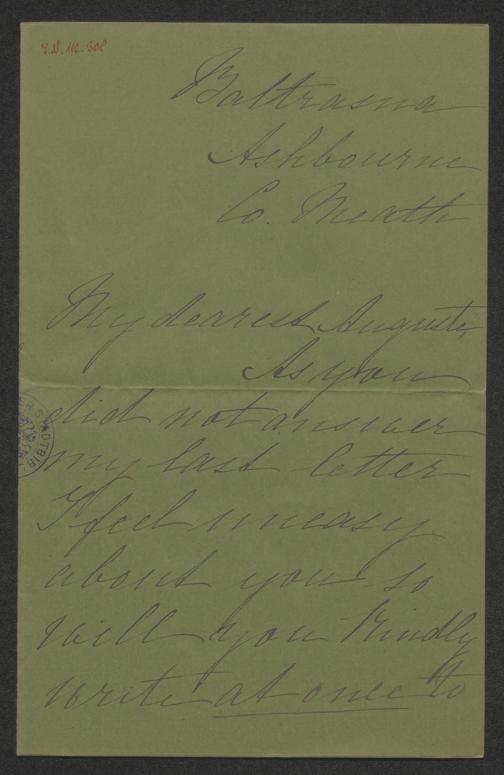 Baltrasna
Ashbourne
Co. Meath
My dearest Auguste,
As you
did not answer
my last letter
I feel uneasy
about you so
will you Kindly
write at once to